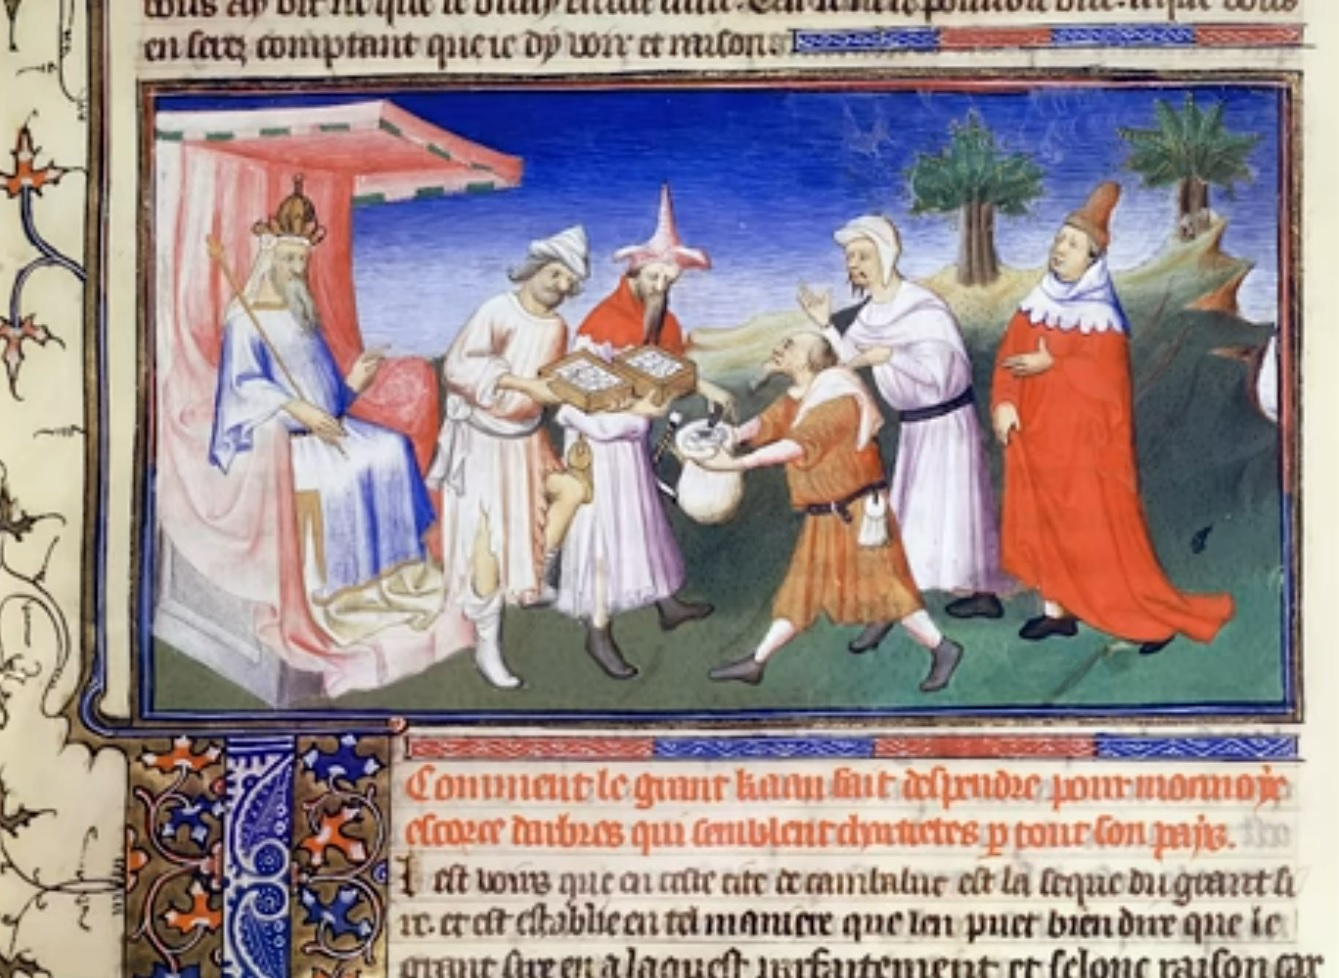 en serez comptant que ie dy voir et raison.
Comment le grant kaan fait despendre pour monnoye
escorce darbres qui semblent chartretes p tout son pays.
l est voirs que en ceste cite de cambaluc est la seque du grant si
re. et est establie en tel maniere que len puet bien dire que le
grant sire en a laquest parfaitement et selonc raison car